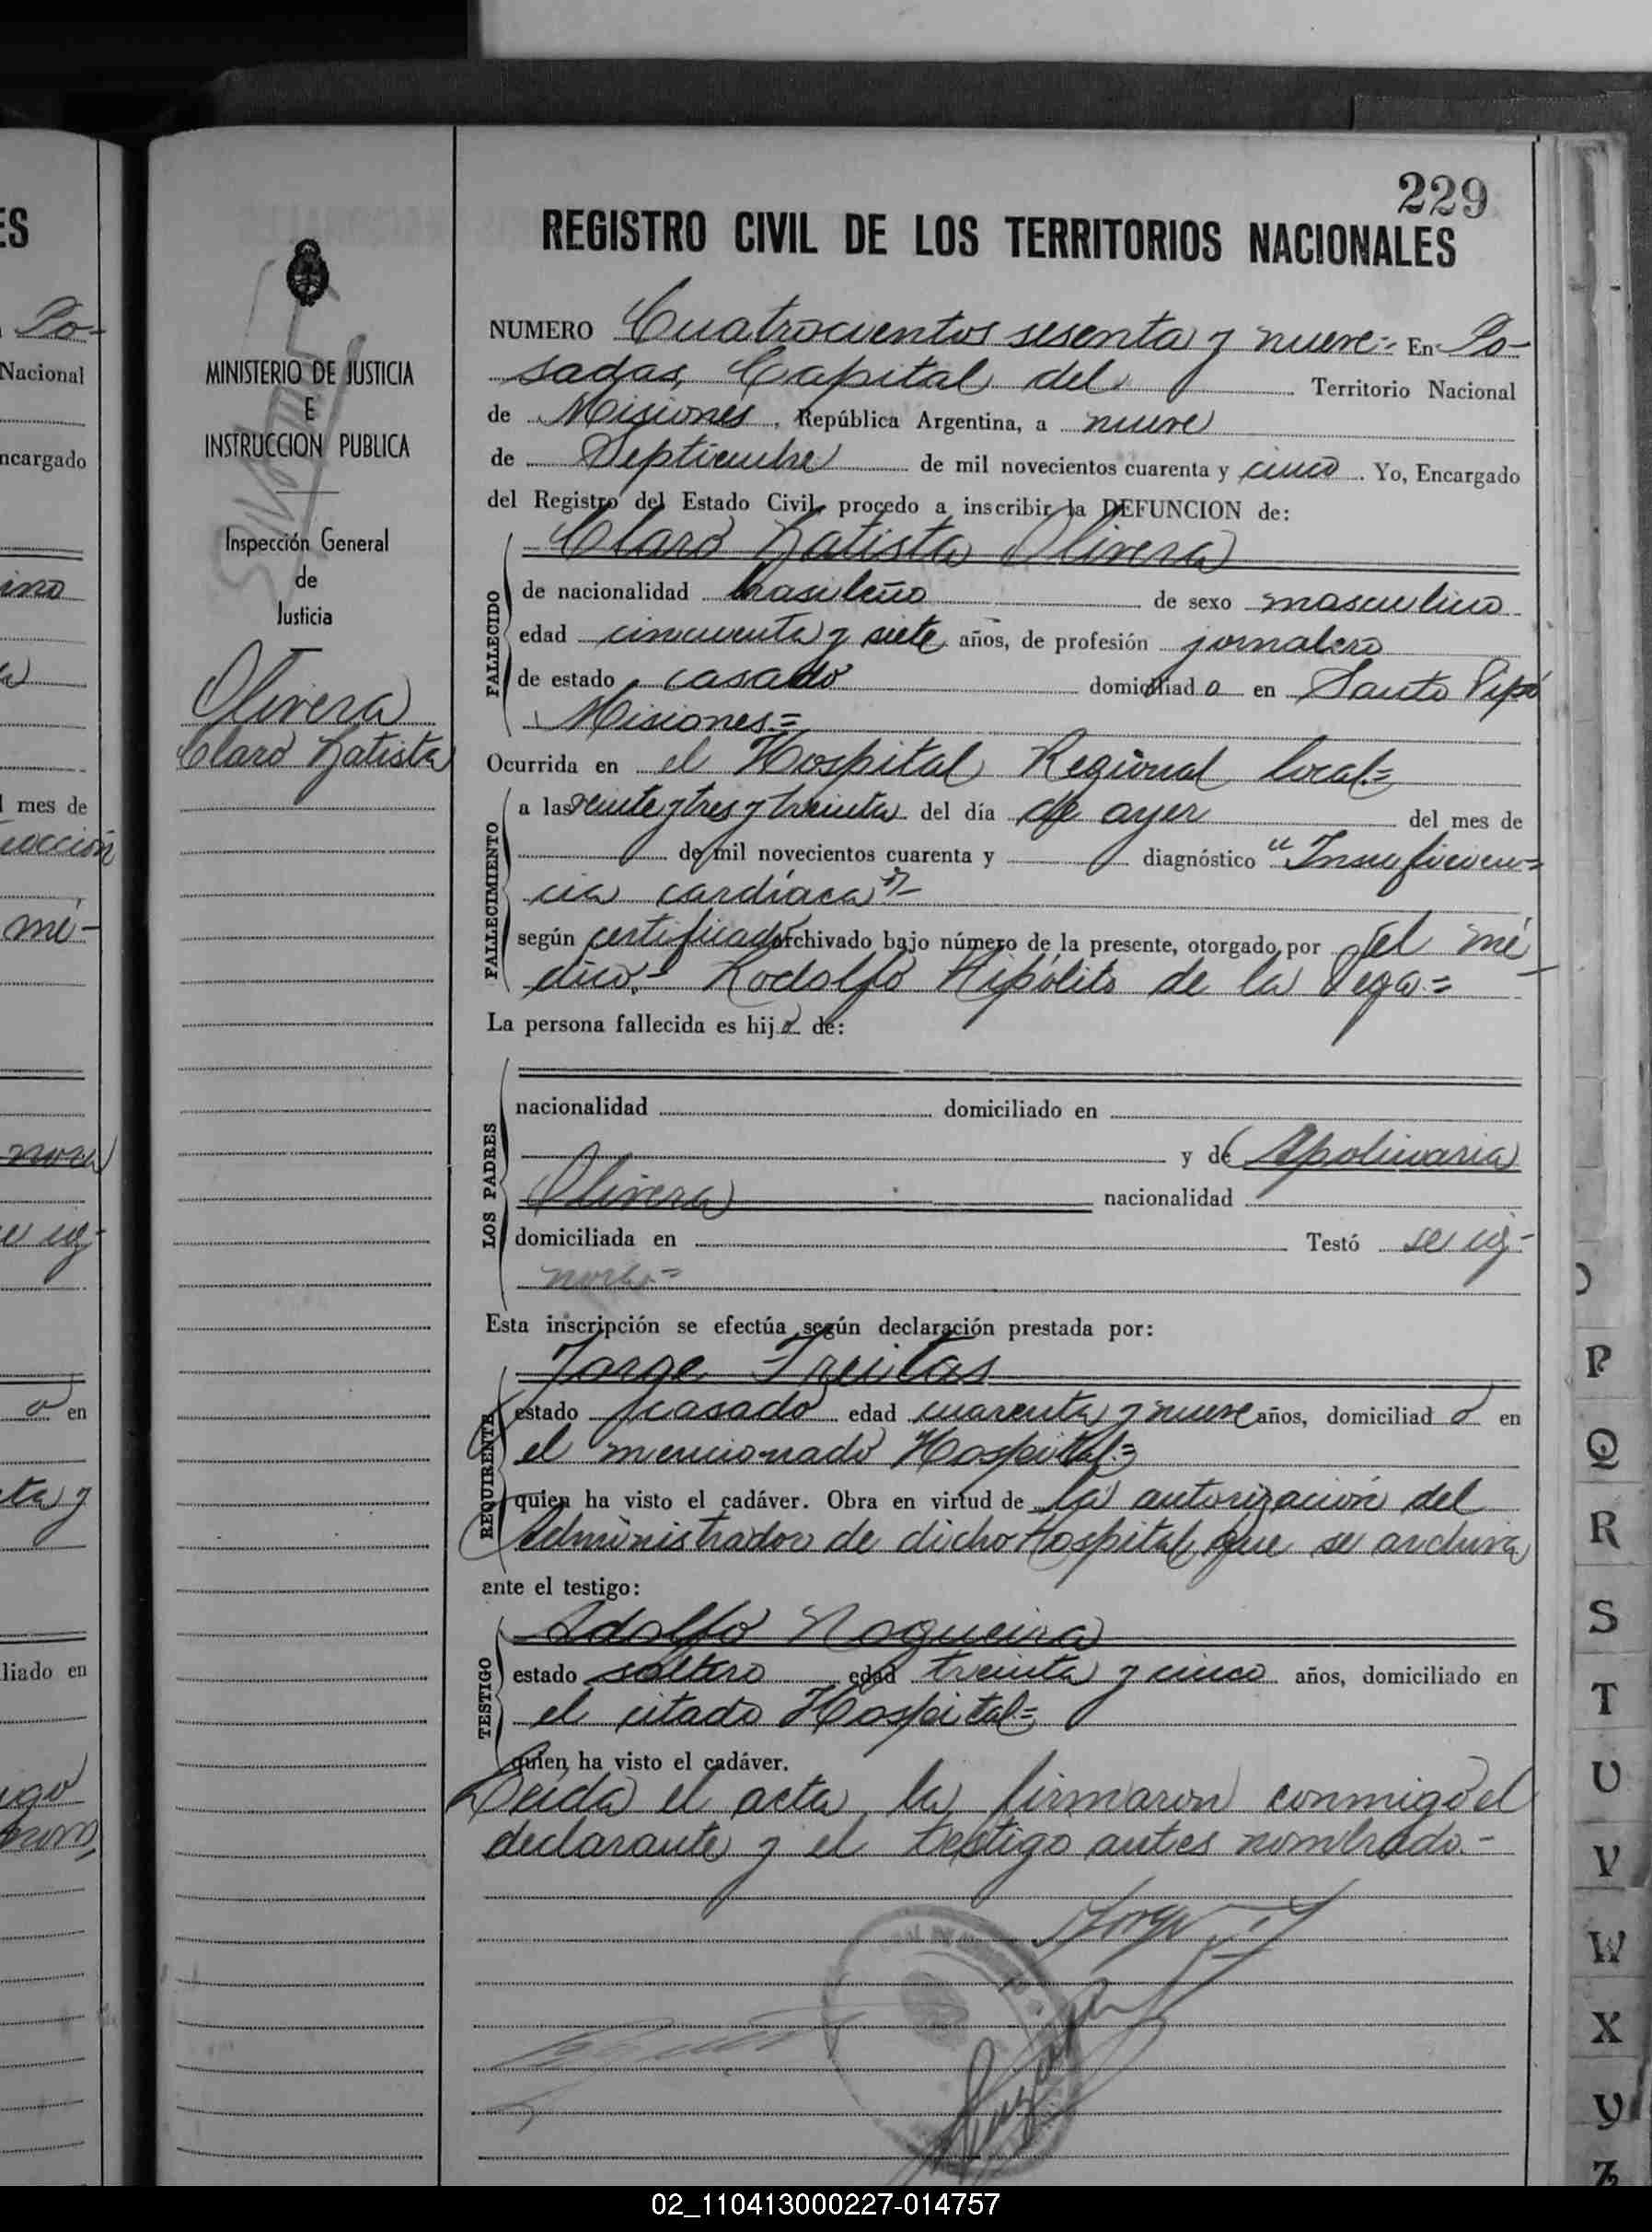 229
REGISTRO CIVIL DE LOS TERRITORIOS NACIONALES
NUMERO Cuatrocientos sesenta y nueve= En Po-
sadas, Capital del Territorio Nacional
de Misiones, República Argentina, a nueve
de Septiembre de mil novecientos cuarenta y cinco. Yo, Encargado
del Registro del Estado Civil, procedo a inscribir la DEFUNCION de:
Claro Batista Olivera
FALLECIDO
de nacionalidad brasileño de sexo masculino
edad cincuenta y siete años, de profesión jornalero
de estado casado domiciliado en Santo Pipó
Misiones=
Ocurrida en el Hospital Regional local=
FALLECIMIENTO
a las veinte y tres y treinta del día de ayer del mes de
de mil novecientos cuarenta y diagnóstico "Insuficien=
cia cardíaca"-
según certificado archivado bajo número de la presente, otorgado por el mé
dico= Rodolfo Hipólito de la Vega=
La persona fallecida es hijo de:
LOS PADRES
nacionalidad domiciliado en
y de Apolinaria
Olivera nacionalidad
domiciliada en Testó se ig-
nora=
Esta inscripción se efectúa según declaración prestada por:
Jorge Freitas
REQUIRENTE
estado casado edad cuarenta y nueve años, domiciliado en
el mencionado Hospital=
quien ha visto el cadáver. Obra en virtud de la autorización del
Administrador de dicho Hospital que se archiva
ante el testigo:
Adolfo Nogueira
TESTIGO
estado soltero edad treinta y cinco años, domiciliado en
el citado Hospital=
quien ha visto el cadáver.
Leída el acta, la firmaron conmigo el
declarante y el testigo antes nombrado.-
MINISTERIO DE JUSTICIA
E
INSTRUCCION PUBLICA
Inspección General
de
Justicia
Olivera
Claro Batista
ES
Po-
Nacional
ncargado
ino
mes de
mé-
nora
e ig-
o en
ta y
liado en
P
Q
R
S
T
U
V
W
X
Y
Z
02_110413000227-014757